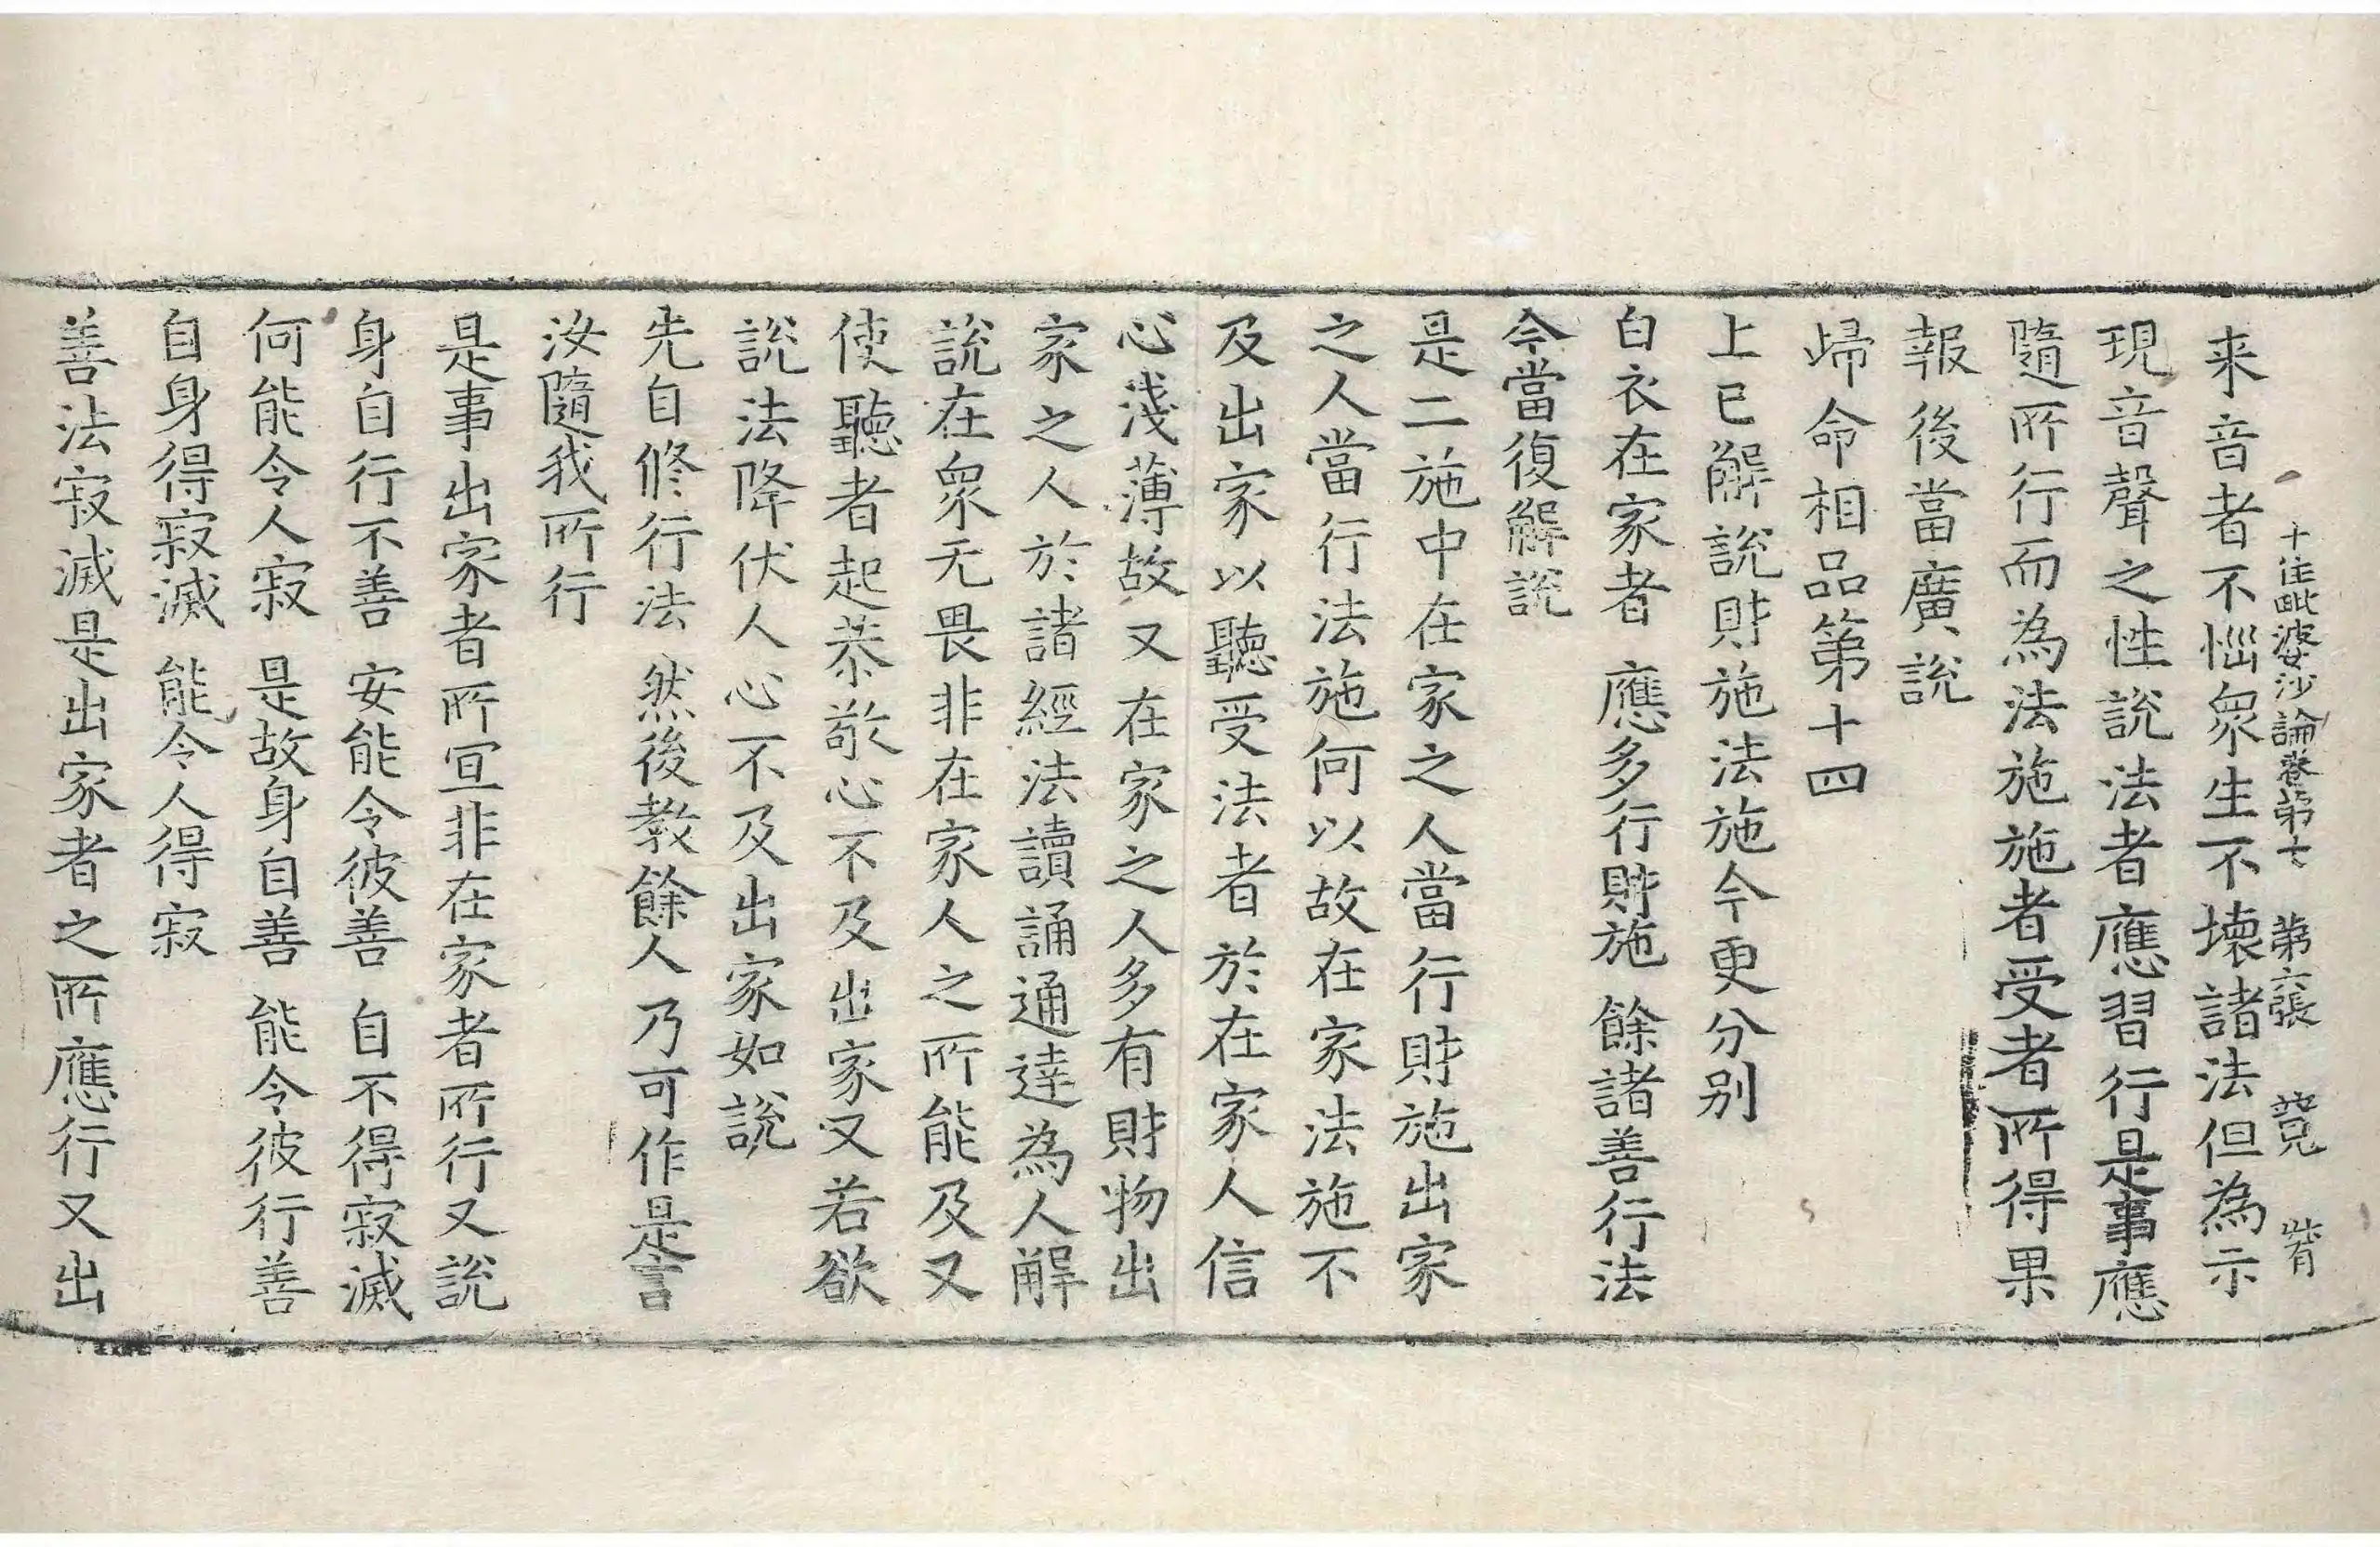 十住毗婆沙論卷第七 第六張
来音者不惱衆生不壞諸法但為示
現音聲之性說法者應習行是事應
隨所行而為法施施者受者所得果
報後當廣說
歸命相品第十四
上已解說財施法施今更分別
白衣在家者 應多行財施 餘諸善行法
今當復解說
是二施中在家之人當行財施出家
之人當行法施何以故在家法施不
及出家以聽受法者於在家人信
心淺薄故又在家之人多有財物出
家之人於諸經法讀誦通達為人解
說在衆无畏非在家人之所能及又
使聽者起恭敬心不及出家又若欲
說法降伏人心不及出家如說
先自修行法 然後教餘人 乃可作是言
汝隨我所行
是事出家者所宜非在家者所行又說
身自行不善 安能令彼善 自不得寂滅
何能令人寂 是故身自善 能令彼行善
自身得寂滅 能令人得寂
善法寂滅是出家者之所應行又出